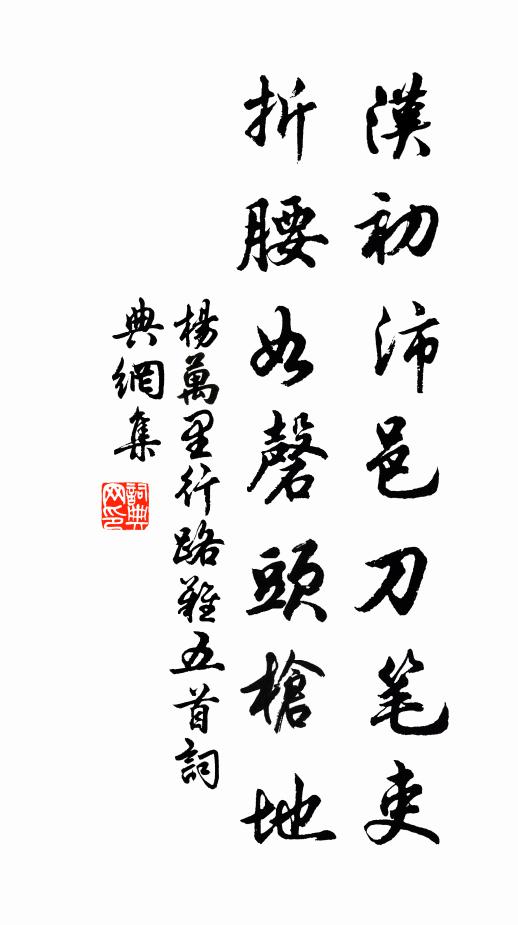 漢初沛邑刀笔吏
折腰如磬頭槍地
楊萬里行路難五首詞
典網集
詞典网印